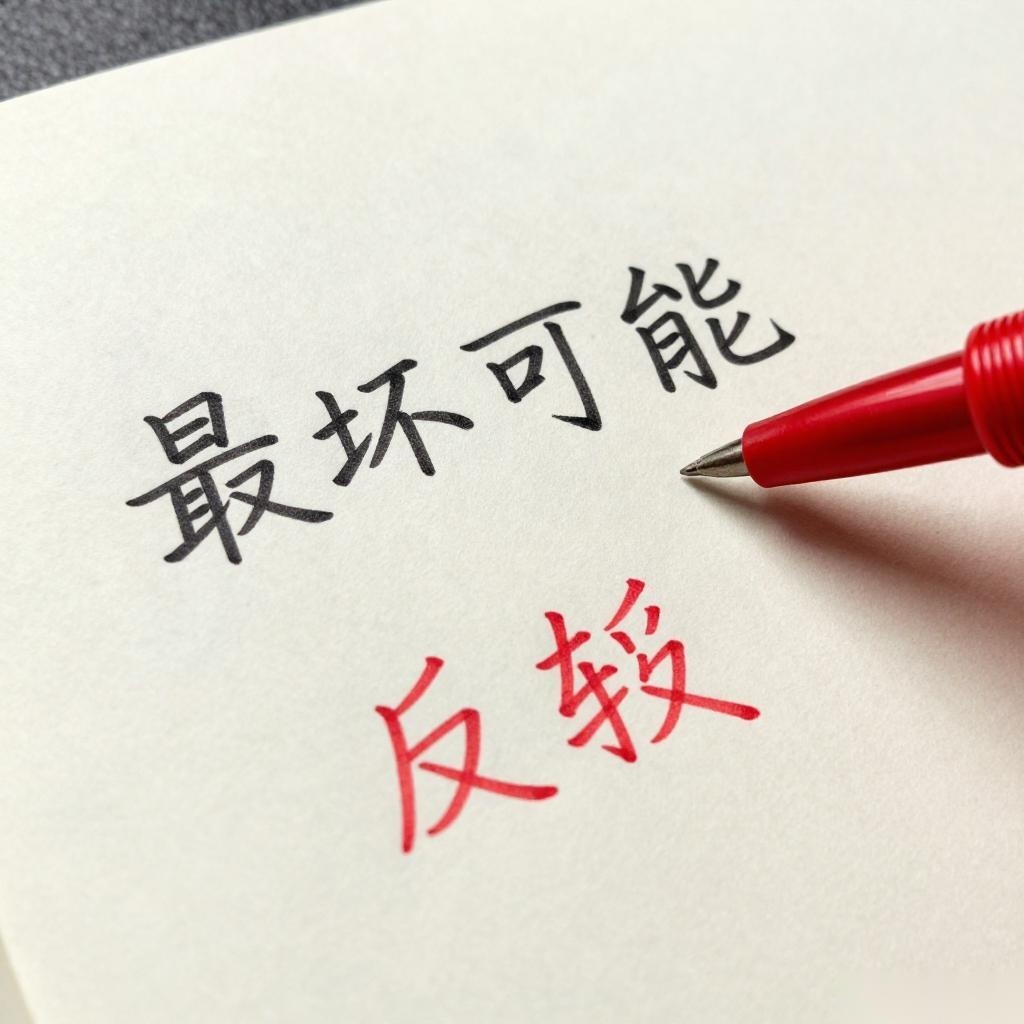 最坏可能
反